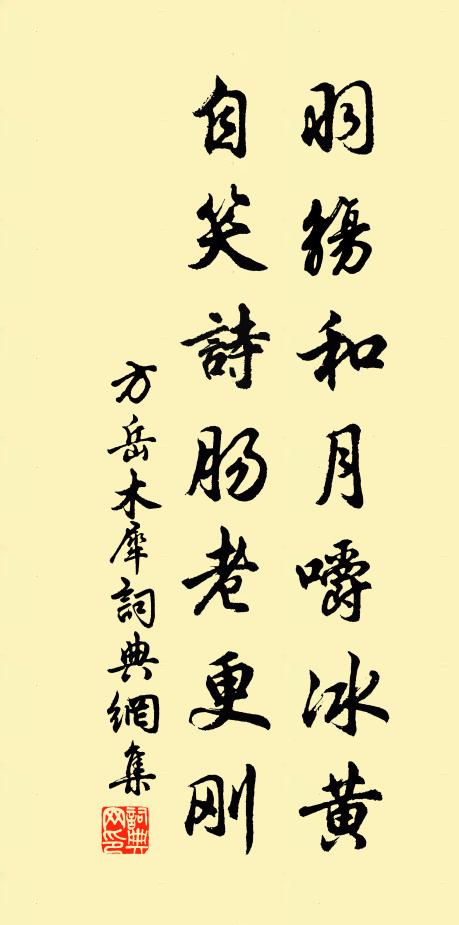 羽觴和月嚼冰黄
自笑詩肠老更刚
方岳木犀詞典網集
詞典网印